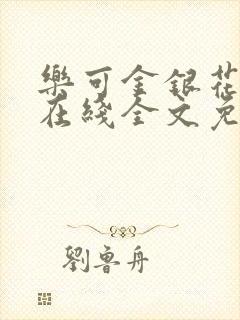 樂可金銀花
在綫全文免
劉魯舟